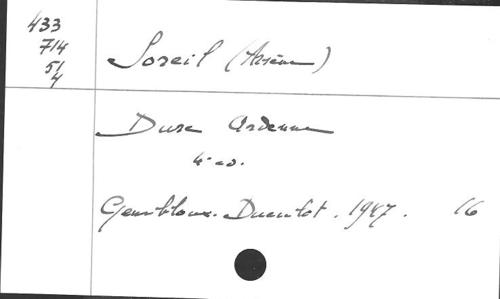 433
714
51
4
Soreil (Arsène)
Dure Ardenne
4e éd.
Gembloux. Duculot. 1947. 16